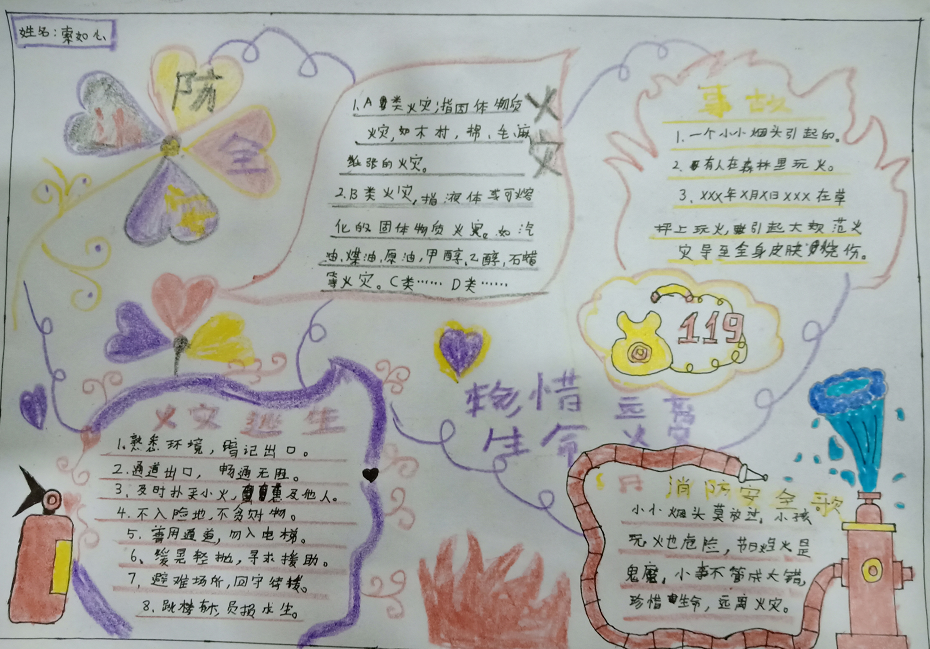 姓名:索如心
防
火
安
全
1.A类火灾:指固体物质
火灾,如木材,棉、毛、麻
纸张的火灾。
2.B类火灾,指液体或可熔
化的固体物质火灾。如汽
油,煤油,原油,甲醇,乙醇,石蜡
等火灾。C类…… D类……
火灾
事故
1.一个小小烟头引起的。
2.有人在森林里玩火。
3、XXX年X月X日XXX在草
坪上玩火引起大规范火
灾导至全身皮肤烧伤。
119
珍惜
生命
远离
火灾
火灾逃生
1.熟悉环境,暗记出口。
2.通道出口,畅通无阻。
3、及时扑灭小火,惠及他人。
4.不入险地,不贪财物。
5.善用通道,勿入电梯。
6、缓晃轻抛,寻求援助。
7、避难场所,固守待援。
8.跳楼有术,
消防安全歌
小小烟头莫放过,小孩
玩火也危险,节日烟火是
鬼魔,小事不管成大错,
珍惜生命,远离火灾。